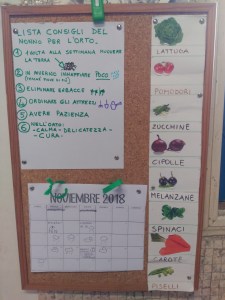 LISTA CONSIGLI DEL
NONNO PER L'ORTO.
1 1 VOLTA ALLA SETTIMANA MUOVERE
LA TERRA
2 IN INVERNO INNAFFIARE POCO
3 ELIMINARE ERBACCE
4 ORDINARE GLI ATTREZZI
5 AVERE PAZIENZA
6 NELL'ORTO:
- CALMA - DELICATEZZA -
- CURA -
LATTUGA
POMODORI
ZUCCHINE
CIPOLLE
MELANZANE
SPINACI
CAROTE
PISELLI
NOVIEMBRE 2018